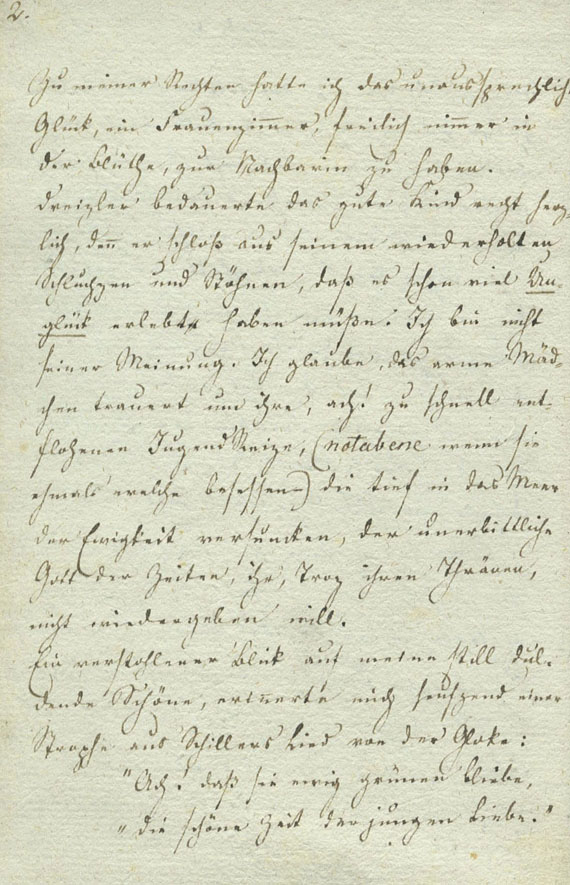 2.
Zu meiner Rechten hatte ich das unaussprechlich
Glück, ein Frauenzimmer, freilich nimmer in
der Blüthe, zur Nachbarin zu haben.
Dreizler bedauerte das gute Kind recht herz-
lich, den̄ er schloß aus seinem wiederholten
Schluchzen und Stöhnen, daß es schon viel Un-
glück erlebt haben müße. Ich bin nicht
seiner Meinung. Ich glaube, das arme Mäd-
chen trauert um ihre, ach! zu schnell ent-
flohenen JugendReize, (notabene wenn sie
ehmals welche besessen) die tief in das Meer
der Ewigkeit versuncken, der unerbittliche
Gott der Zeiten, ihr, Troz ihren Thränen,
nicht wiedergeben will.
Ein verstohlener Blick auf meine still dul-
dende Schöne, erin̄erte mich seufzend einer
Strophe aus Schillers Lied von der Gloke:
"Ach! daß sie ewig grünen bliebe,
"die schöne Zeit der jungen Liebe."